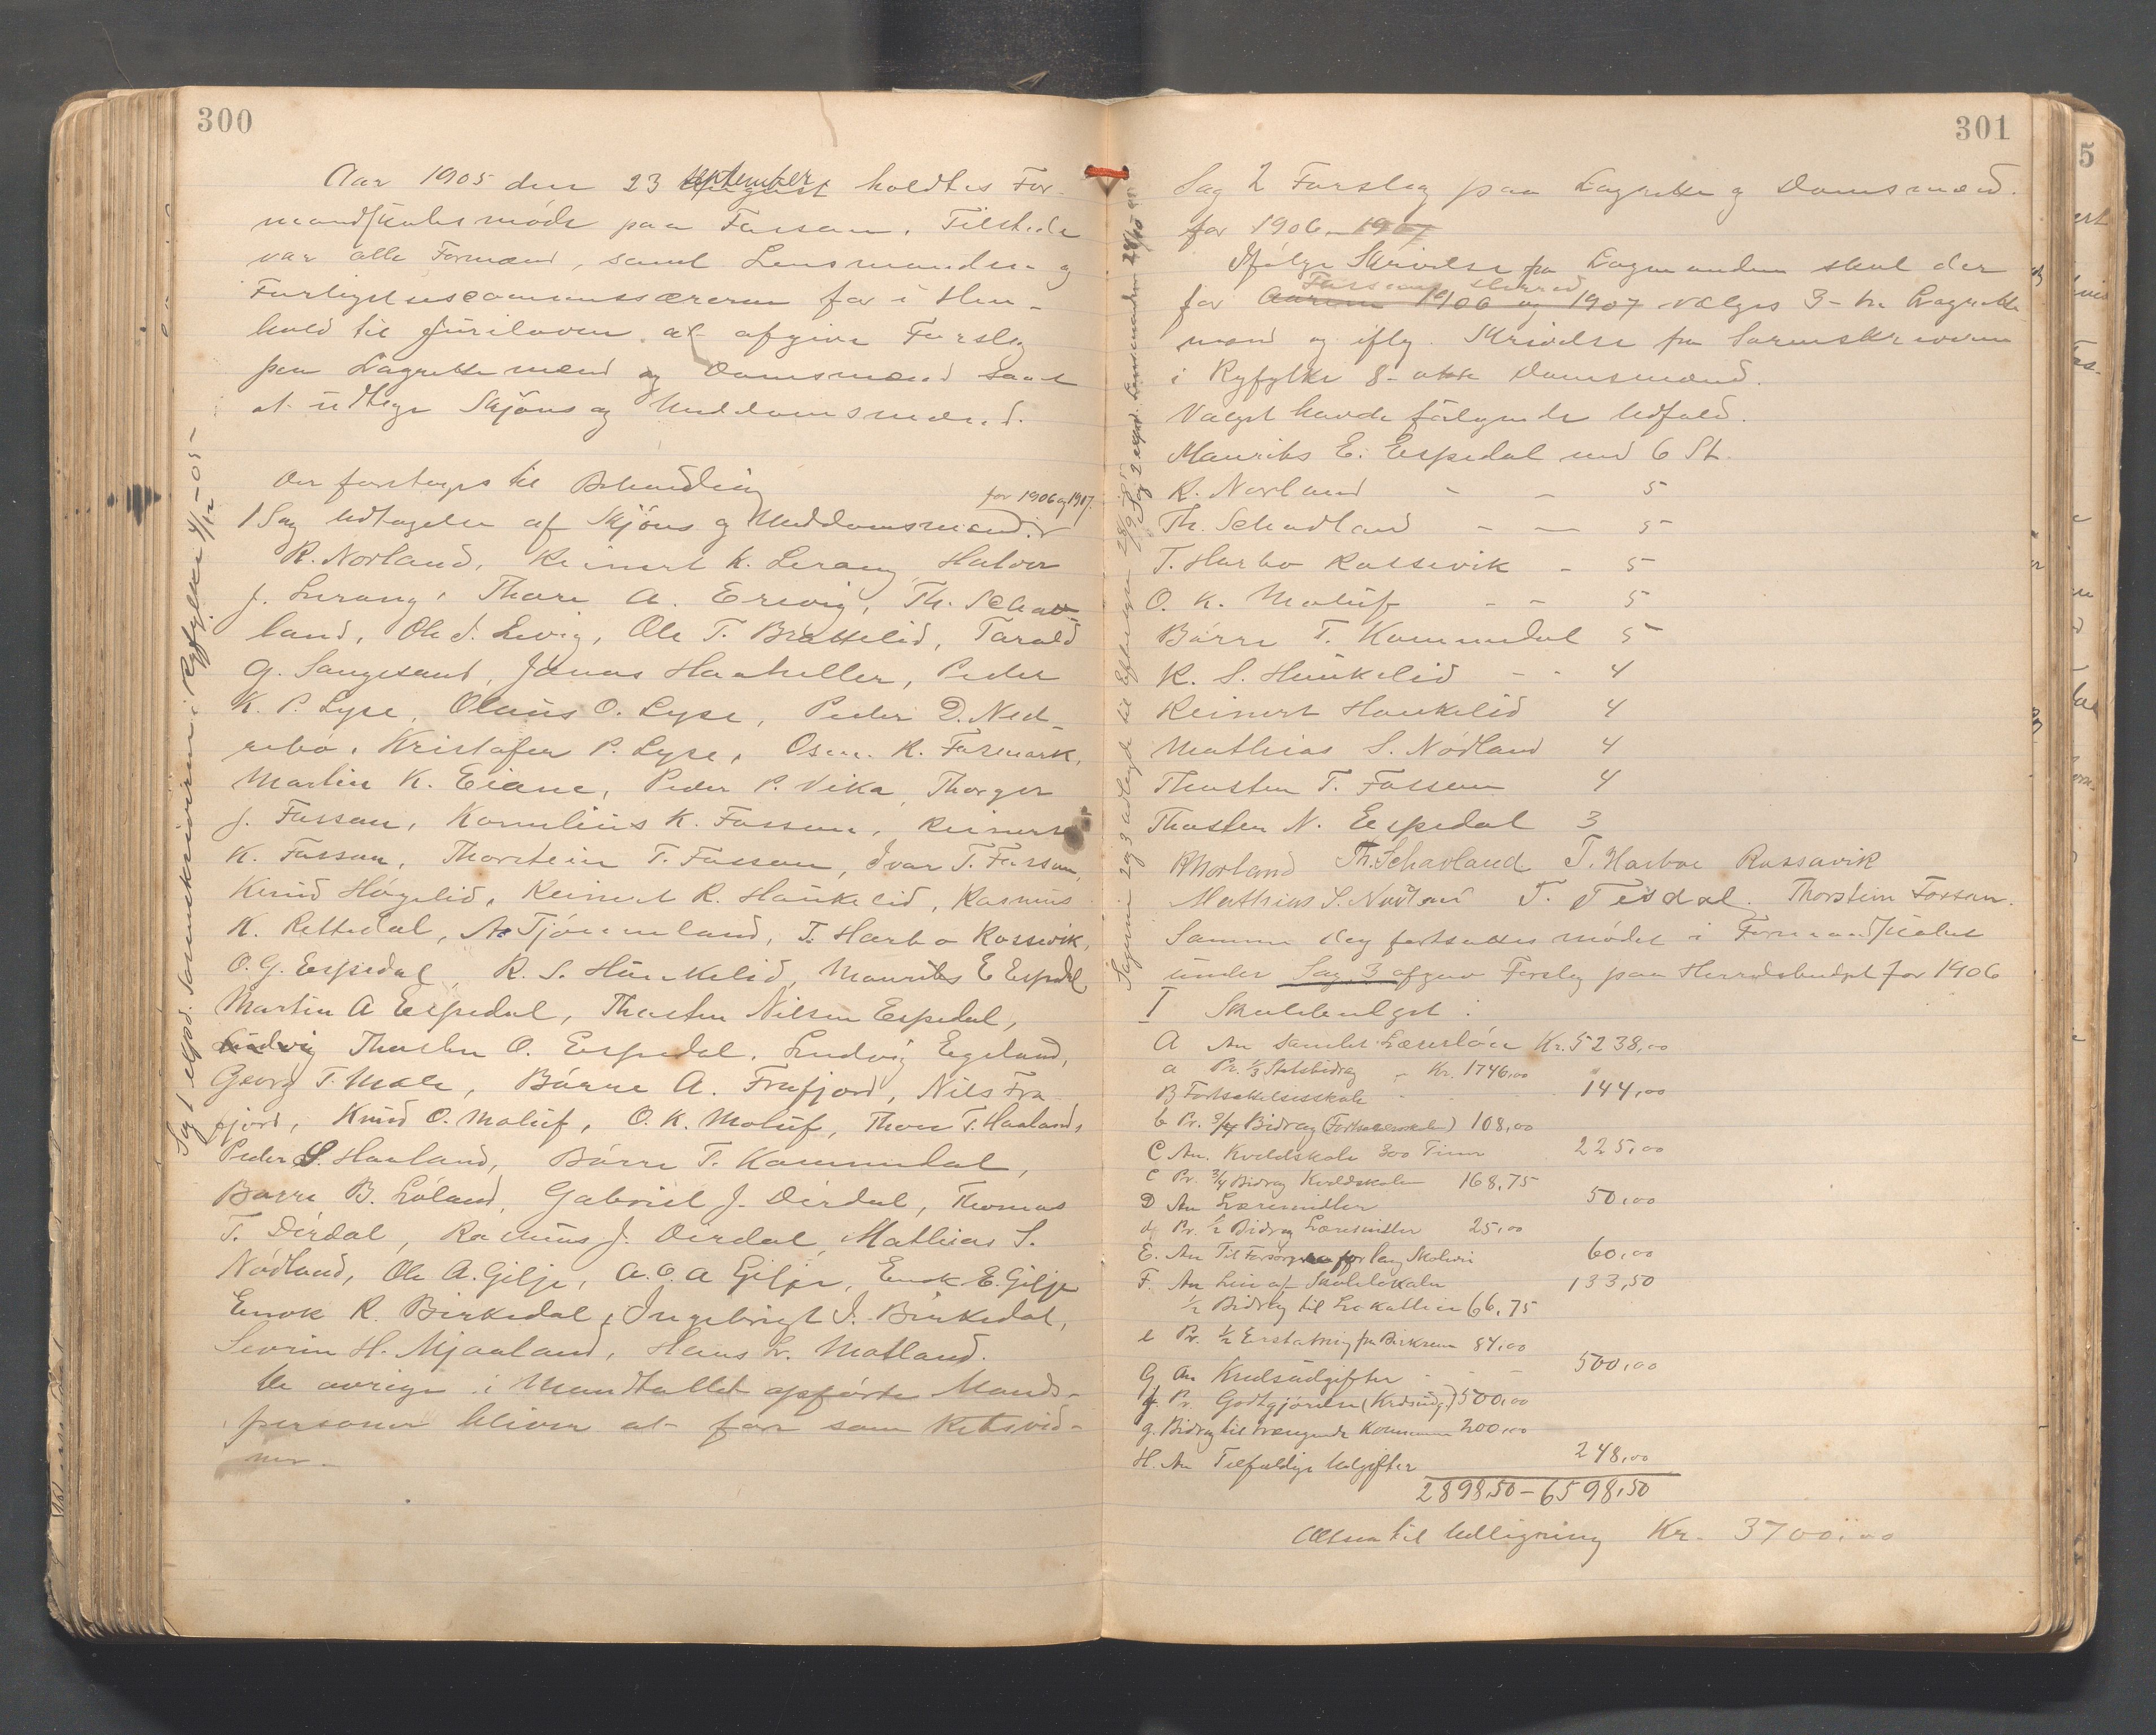 300
Aar 1905 den 23 september holdtes For-
mandskabsmöde paa Fossan. Tilstede
var alle Formænd, samt Lensmanden og
Forligelsescommissærerne for i Hen-
hold til Juriloven at afgive Forslag
paa Lagrettemænd og Domsmænd samt
at udtage Skjöns og Meddomsmænd.
Der foretoges til Behandling
for 1906 og 1907.
1 Sag Udtagelse af Skjöns og Meddomsmænd.
R. Norland, Reinert K. Lerang, Halvor
J. Lerang, Thore A. Erevig, Th. Schav-
land, Ole J. Levig, Ole T. Brattelid, Tarald
G. Sangesand, Jonas Haaheller, Peder
K. P. Lyse, Olaus O. Lyse, Peder D. Ned-
rebö, Kristofer P. Lyse, Osm. K. Fosmark,
Martin K. Eiane, Peder P. Vika, Thorger
J. Fossan, Kornelius K. Fossan, Reinert
K. Fossan, Thorstein T. Fossan, Ivar T. Fossan,
Knud Högelid, Reinert R. Haukelid, Rasmus
K. Rettedal, A. Tjömmland, T. Harbo Rossevik,
O. G. Espedal, R. S. Haukelid, Maurits E Espedal
Martin A Espedal, Thosten Nilsen Espedal,
Ludvig Thosten O. Espedal, Ludvig Eigeland,
Georg T. Mæle, Börre A. Frafjord, Nils Fra-
fjord, Knud O. Molauf, O. K. Molauf, Thore T. Haaland,
Peder S. Haaland, Börre T. Kommedal,
Börre B. Löland, Gabriel J. Dirdal, Thomas
T. Dirdal, Rasmus J. Dirdal, Mathias S.
Nödland, Ole A. Gilje, A. O. A Gilje, Enok E. Gilje
Enok R. Birkedal, Ingebrigt I. Birkedal,
Sevrin H. Mjaaland, Hans L. Motland.
De övrige i Mandtallet opförte Mands-
personer bliver at före som Retsvid-
ner.
Sag 1 exped. Sorenskriveren i Ryfylke 4/12-05-
301
Sag 2 Forslag paa Lagrette og Domsmænd.
for 1906 - 1907
Ifölge Skrivelse fra Lagmanden skal der
Fossans Herred
for Aarene 1906 og 1907 vælges 3- tre Lagrette
mænd og iflg. Skrivelse fra Sorenskriveren
i Ryfylke 8- otte Domsmænd.
Valget havde fölgende Udfald.
Maurits E. Espedal med 6 St.
R. Norland - - 5
Th. Schavland - - 5
T. Harbo Rossevik - 5
O. K. Molauf - - 5
Börre T. Kommedal 5
R. S. Haukelid - - 4
Reinert Haukelid 4
Mathias S. Nödland 4
Thosten T. Fossan 4
Thosten N. Espedal 3
R Norland Th. Schavland T. Harboe Rossavik
Mathias S. Nödland T. Tesdal. Thorstein Fossan.
Samme dag fortsattes mödet i Formandskabet
under Sag 3 afgav Forslag paa Herredsbudget for 1906
I Skolebudget:
A An samlet Lærerlön Kr. 5238,00
a Pr. 1/3 Statsbidrag - Kr. 1746,00
B Fortsættelsesskole - - - 144,00
b Pr. 3/4 Bidrag (Fortsættelsesskole) 108,00
C An. Kveldskole 300 Timer 225,00
c Pr. 3/4 Bidrag Kveldskolen 168,75
D An Læremidler 50,00
d Pr. 1/2 Bidrag Læremidler 25,00
E. An Til Forsörgelse for lang Skolevei 60,00
F. An Leie af Skolelokaler 133,50
1/2 Bidrag til Lokalleie 66,75
e Pr. 1/2 Erstatning fra Birkrem 84,00
G An Kredsudgifter - - 500,00
f. Pr. Godtgjörelse (Kredsudg.) 500,00
g. Bidrag til trængende Kommuner 200,00
H. An Tilfældige Udgifter 248,00
2898,50 - 6598,50
Altsaa til Udligning Kr. 3700,00
Sagerne 2 og 3 udlagde til Eftersyn 28/9 05 Sag 2 exp. Lensmanden 28/10-05
5